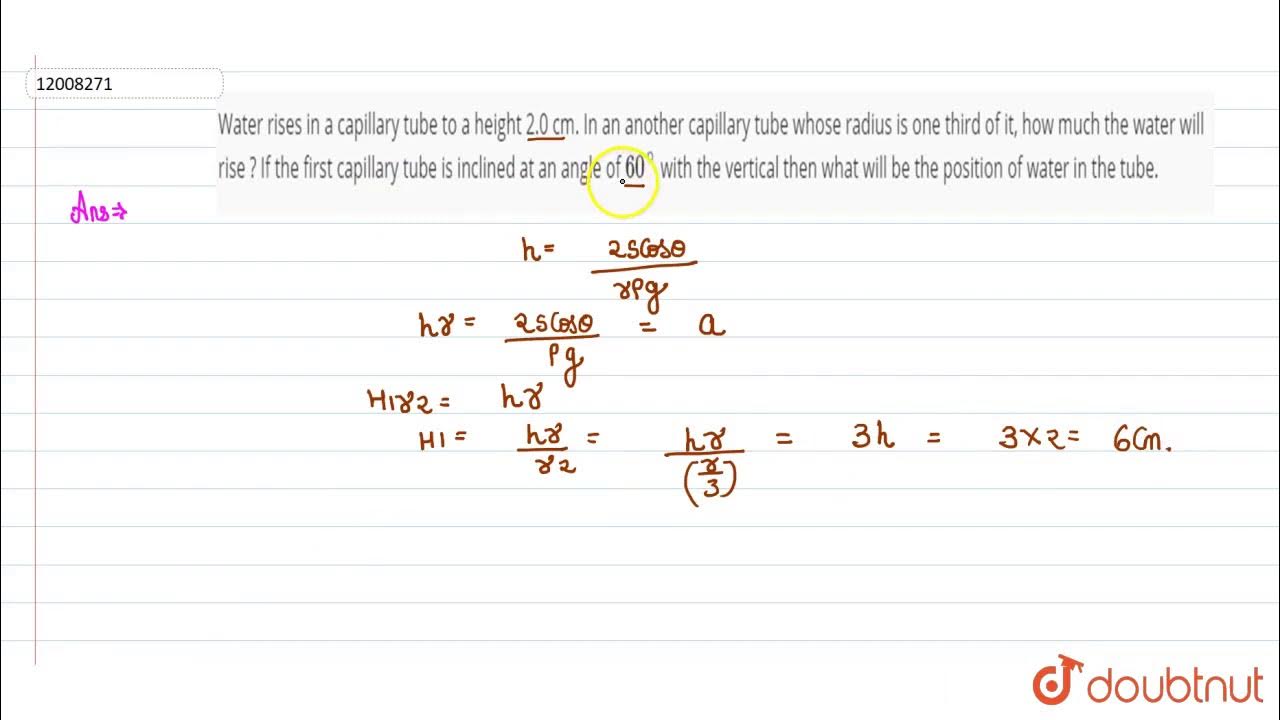 12008271
Water rises in a capillary tube to a height 2.0 cm. In an another capillary tube whose radius is one third of it, how much the water will
rise ? If the first capillary tube is inclined at an angle of 60° with the vertical then what will be the position of water in the tube.
Ans⇒
h = 2SCosθ / rρg
hr = 2SCosθ / ρg = a
H1r2 = hr
H1 = hr / r2 = hr / (r/3) = 3h = 3×2 = 6Cm.
doubtnut